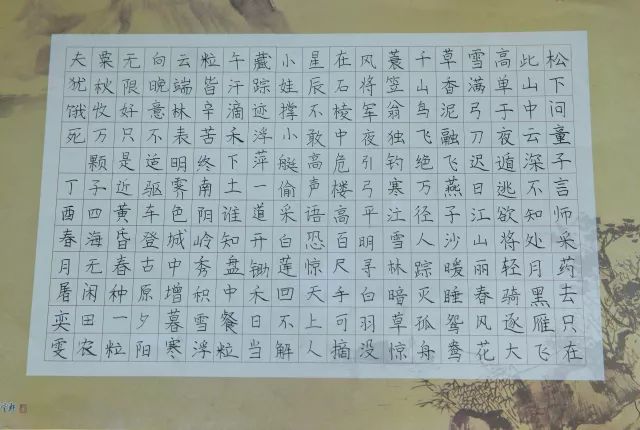 松下问童子言师采药去只在
此山中云深不知处月黑雁飞
高单于夜遁逃欲将轻骑逐大
雪满弓刀迟日江山丽春风花
草香泥融飞燕子沙暖睡鸳鸯
千山鸟飞绝万径人踪灭孤舟
蓑笠翁独钓寒江雪林暗草惊
风将军夜引弓平明寻白羽没
在石棱中危楼高百尺手可摘
星辰不敢高声语恐惊天上人
小娃撑小艇偷采白莲回不解
藏踪迹浮萍一道开锄禾日当
午汗滴禾下土谁知盘中餐粒
粒皆辛苦终南阴岭秀积雪浮
云端林表明霁色城中增暮寒
向晚意不适驱车登古原夕阳
无限好只是近黄昏春种一粒
粟秋收万颗子四海无闲田农
夫犹饿死 丁酉春月屠奕雯